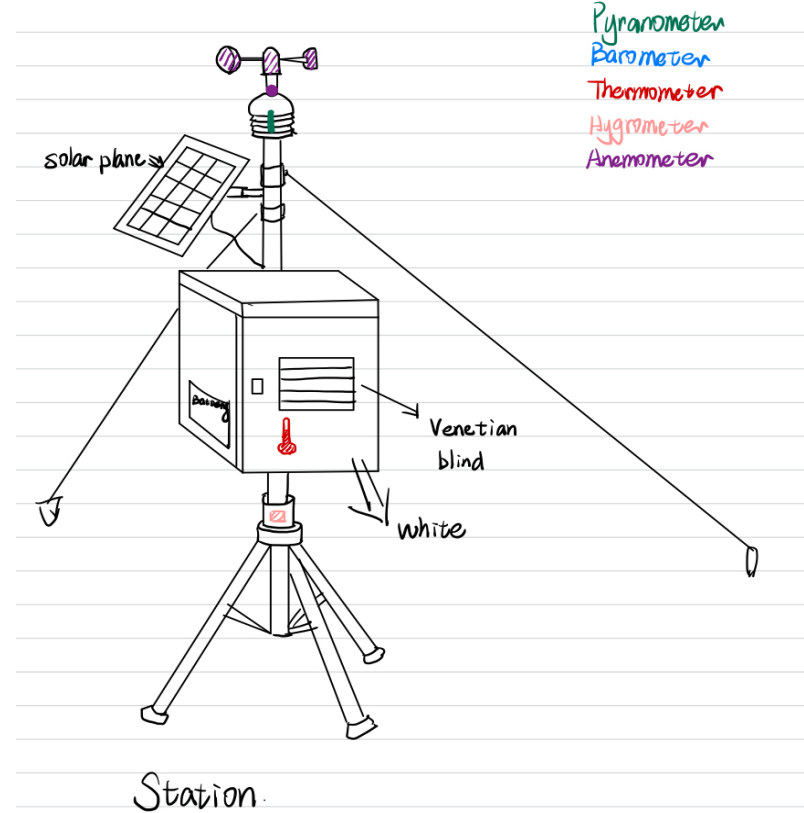 Pyranometer
Barometer
Thermometer
Hygrometer
Anemometer
solar plane
Battery
Venetian
blind
white
Station.